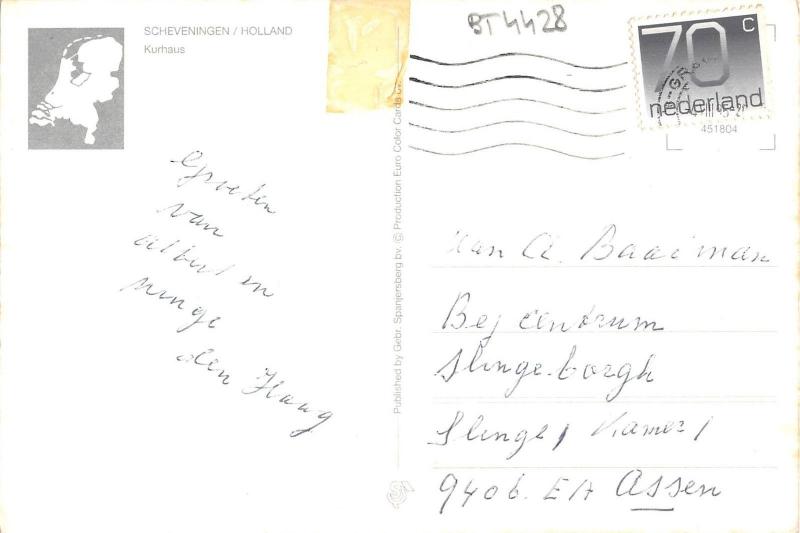 SCHEVENINGEN / HOLLAND
Kurhaus
BT4428
70 c
nederland
451804
Groeten
van
Albert en
den Haag
Published by Gebr. Spanjersberg bv. © Production Euro Color Cards
A. Baaiman
Bej centrum
Slingeborgh
Slinge, Kamer,
9406. EA Assen